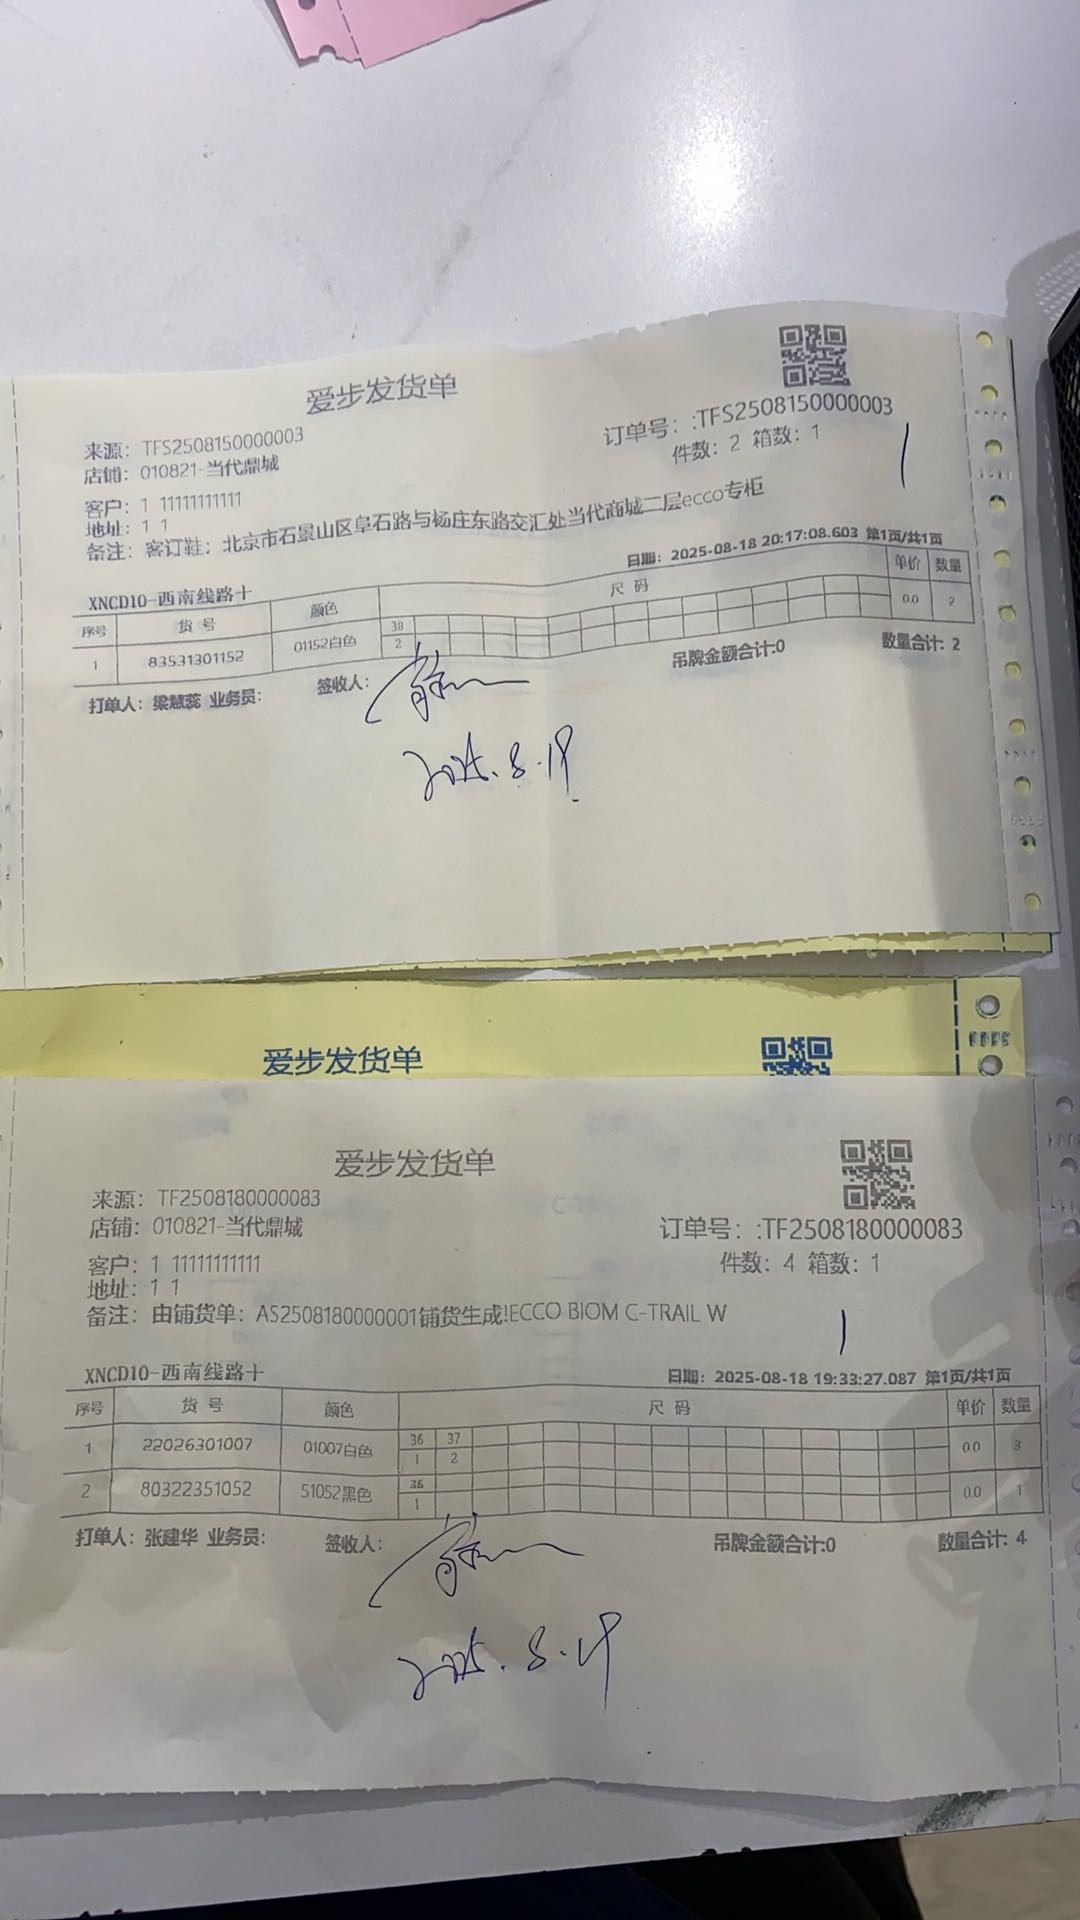 爱步发货单
来源: TFS2508150000003
订单号: :TFS2508150000003
店铺: 010821-当代鼎城
件数: 2 箱数: 1
客户: 1 11111111111
地址: 1 1
备注: 客订鞋; 北京市石景山区阜石路与杨庄东路交汇处当代商城二层ecco专柜
XNCD10-西南线路十
日期: 2025-08-18 20:17:08.603 第1页/共1页
序号 货号 颜色 尺码 单价 数量
38
1 83531301152 01152白色 2 0.0 2
打单人: 梁慧蕊 业务员: 签收人: 吊牌金额合计:0 数量合计: 2
2025.8.19
爱步发货单
爱步发货单
来源: TF2508180000083
店铺: 010821-当代鼎城
订单号: :TF2508180000083
件数: 4 箱数: 1
客户: 1 11111111111
地址: 1 1
备注: 由铺货单: AS2508180000001铺货生成!ECCO BIOM C-TRAIL W
XNCD10-西南线路十
日期: 2025-08-18 19:33:27.087 第1页/共1页
序号 货号 颜色 尺码 单价 数量
36 37
1 22026301007 01007白色 1 2 0.0 3
36
2 80322351052 51052黑色 1 0.0 1
打单人: 张建华 业务员: 签收人: 吊牌金额合计:0 数量合计: 4
2025.8.19